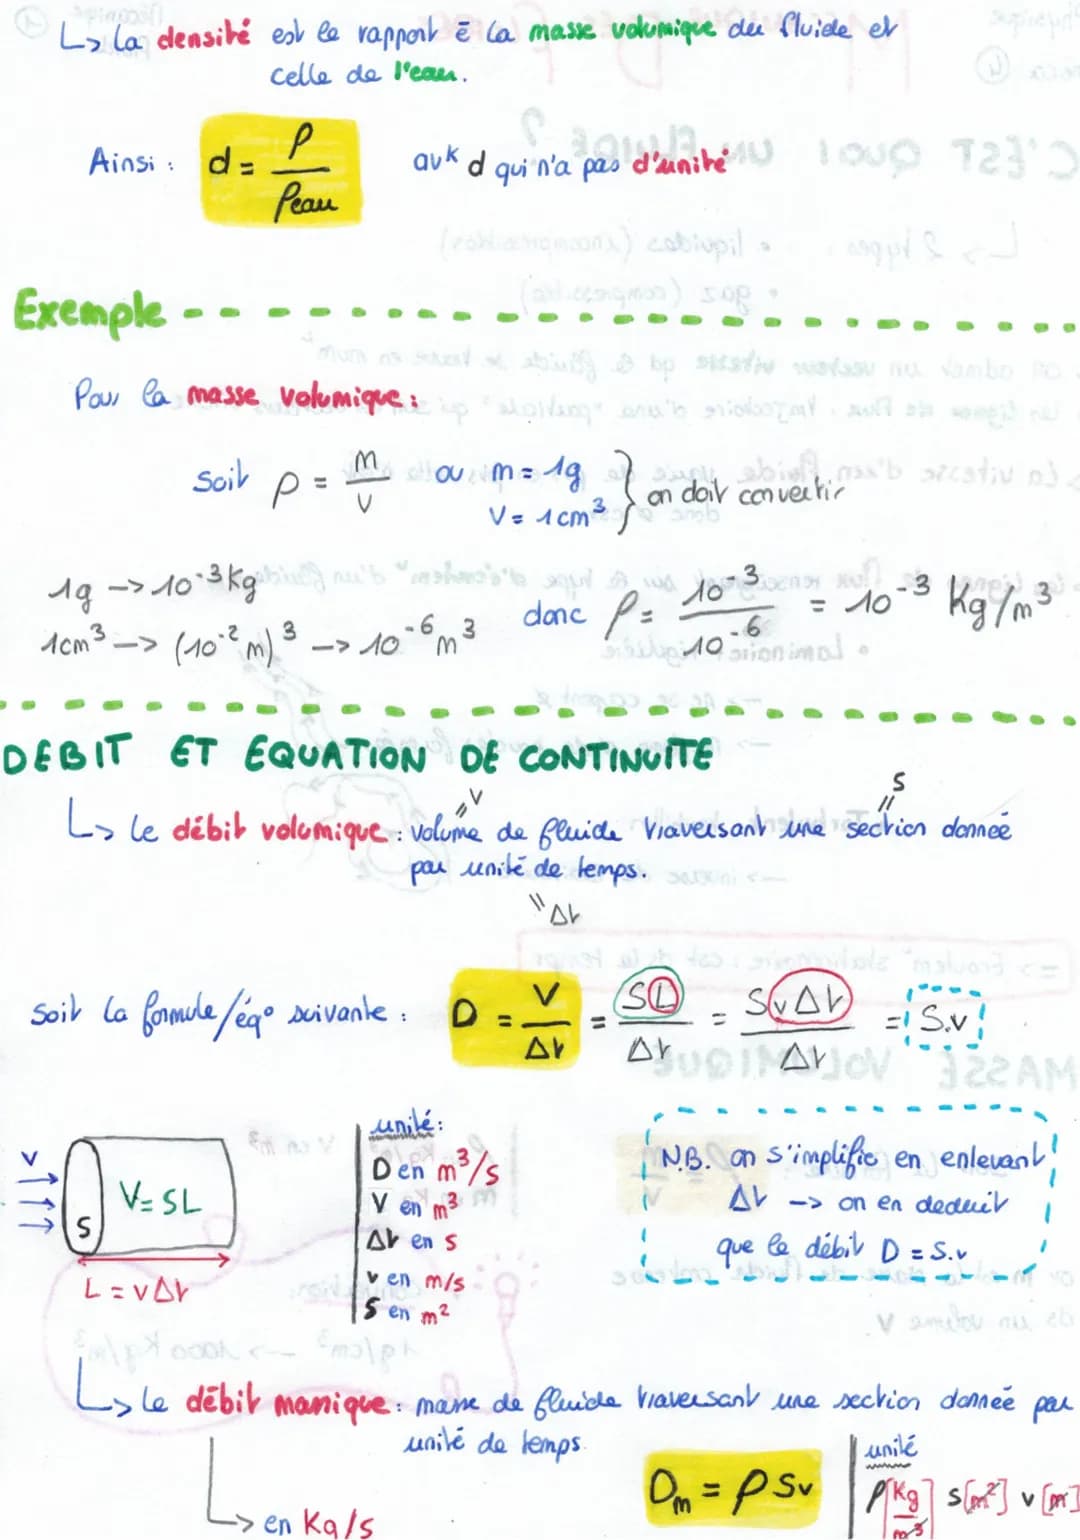 ↳ La densité est le rapport ē la masse volumique du fluide et
celle de l'eau.
Ainsi : d = ρ / ρeau avk d qui n'a pas d'unité
Exemple
Pour la masse volumique :
Soit ρ = m/v où m = 1g
V = 1cm³ } on doit convertir
1g -> 10⁻³ Kg
1cm³ -> (10⁻² m)³ -> 10⁻⁶ m³
donc ρ = 10⁻³ / 10⁻⁶ = 10⁻³ Kg/m³
DEBIT ET EQUATION DE CONTINUITE
↳ Le débit volumique : volume de fluide traversant une section donneé
"V
S"
par unité de temps.
"Δt
Soit la formule/éq° suivante : D = V/Δt = SL/Δt = SvΔt/Δt = S.v
V
V = SL
S
L = vΔt
unité :
D en m³/s
V en m³
Δt en s
v en m/s
S en m²
N.B. on s'implifie en enlevant
Δt -> on en deduit
que le débit D = S.v
↳ Le débit massique : masse de fluide traversant une section donnée par
unité de temps.
↳ en Kg/s
Dm = ρSv
unité
ρ[Kg/m³] S[m²] v[m]